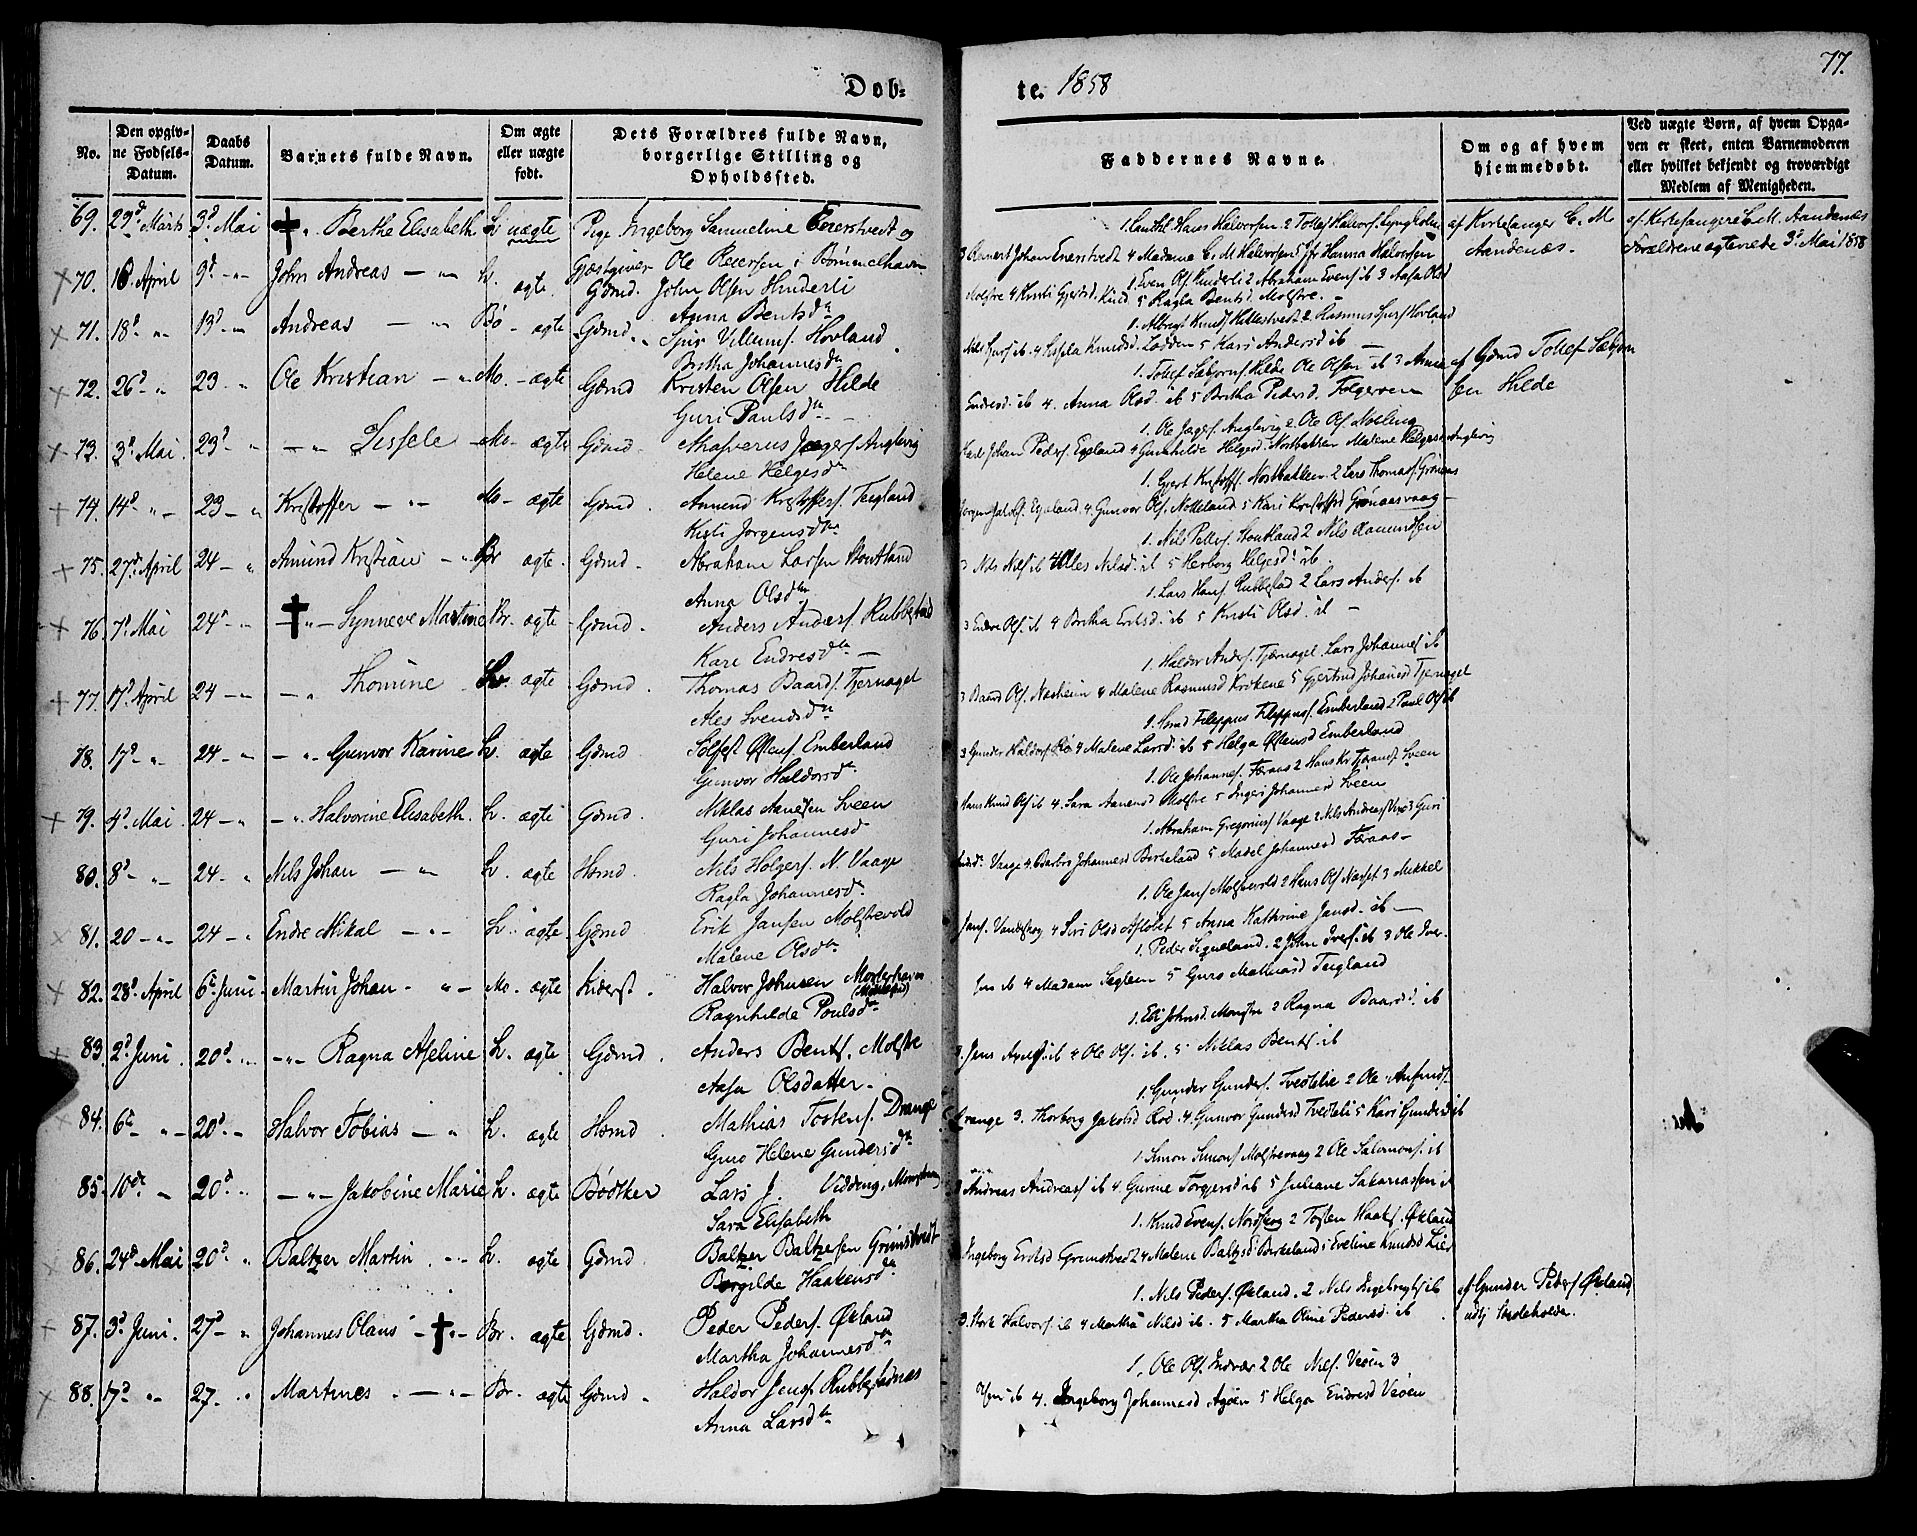 77.
Døb-
te. 1858
No.
Den opgiv-
ne Fødsels-
Datum.
Daabs
Datum.
Barnets fulde Navn.
Om ægte
eller uægte
født.
Dets Forældres fulde Navn,
borgerlige Stilling og
Opholdssted.
Faddernes Navne.
Om og af hvem
hjemmedøbt.
Ved uægte Børn, af hvem Opga-
ven er skeet, enten Barnemoderen
eller hvilket bekjendt og troværdigt
Medlem af Menigheden.
69. 29d Marts 3d Mai Berthe Elisabeth L uægte Pige Ingeborg Samueline Enerstvedt og
Gjæstgiver Ole Reiersen i Bømmelhavn
1. Hans Halvorsen 2 Tollef Halvors. Lyngholm
3 Reinert Johan Enerstvedt 4 Madame C. M. Halvorsen 5 Jfr Hanna Halvorsen
af Kirkesanger C. M
Aandenæs.
af Kirkesanger C. M. Aandenæs
Forældrene ægteviede 3d Mai 1858
70. 16 April 9d John Andreas L. ægte Gdmd. John Olsen Hinderli
Anna Bentsdtr
1. Even Ols. Hinderli 2 Abraham Evens. ib 3 Aasa Olsd
Molstre 4 Kirsti Gjertsd. Hind. 5 Ragla Bentsd. Molstre.
71. 18d 13d Andreas Bø ægte Gdmd. Sjur Villums. Hovland
Britha Johannesdtr
1. Albregt Knuds. Hillestvedt 2. Rasmus Sjurs. Hovland
Nils Sjurs. ib. 4 Knudsd. Lodden 5 Kari Andersd ib
72. 26d 23 Ole Kristian Mo. ægte Gdmd Kristen Olsen Hilde
Guri Paulsdtr
1. Tollef Sæbjørns. Hilde Ole Olsen ib 3 Anna
Endresd. ib 4. Anna Olsd. ib 5 Britha Pedersd. Folgerøen
af Gdmd Tollef Sæbjørn
sen Hilde
73. 3d Mai 23d Sissele Mo. ægte Gdmd. Auglevig
Helene Helgesdtr
1. Ole Auglevig 2 Ole Ols.
Karl Johan Peders. Egeland 4 Gunhilde Helgesd. Nordbakken Malene Helgesd Auglevig
74. 14d 23 Kristoffer Mo. ægte Gdmd. Amund Kristoffers. Teigland
Kirsti Jørgensdtr
1. Gjert Kristoffs. Nordbakken 2 Lars Thomas. Grønaas
Egeland 4. Gunvor Ols. Nolleland 5 Kari Kristoffsd Grønaasvaag
75. 27d April 24 Amund Kristian Br ægte Gdmd. Abraham Larsen Stoutland
Anna Olsdtr
1. Nil Peders. Stoutland 2 Nils Aamundsen
3 Nils Nils. ib 4 Ales Nilsd. ib 5 Herborg Helgesd. ib.
76. 7d Mai 24 Synneve Martine Br. ægte Gdmd. Anders Anders. Rubbestad
Kari Endresdtr
1. Lars Hans. Rubbestad 2 Lars Anders. ib
3 Endre Ols. ib 4 Britha Eriksd. ib 5 Kirsti Olsd. ib
77. 17d April 24 Thomine L. ægte Gdmd. Thomas Baards. Tjernagel
Ales Svendsdtr
1. Haldor Anders. Tjernagel. Lars Johannes. ib
3 Baard Ols. Næsheim 4 Malene Rasmusd Krokene 5 Gjertrud Johansd Tjernagel
78. 17d 24 Gunvor Karine L. ægte Gdmd. Emberland
Gunvor Haldorsdtr
1. Hsmd Filippus Filippus. Emberland 2 Poul Ols ib
3 Gunder Haldors. Rø 4 Malene Larsd. ib 5 Helga Emberland
79. 4d Mai 24 Halvorine Elisabeth. L. ægte Gdmd. Niklas Aanesen Sveen
Guri Johannesd
1. Ole Johannes. Færaas 2 Hans Kr Sveen
Hans Knud Ols ib 4. Sara Aanensd Molstre 5 Ingeri Johannesd Sveen
80. 8d 24 Nils Johan L. ægte Hsmd. Nils Holgers. N. Vaage
Ragla Johannesd.
1. Abraham Gregorius. Vaage 2 Nils Andreas 3 Guri
Vaage 4 Barbro Johannesd Birkeland 5 Madel Johannesd Færaas
81. 20 24 Endre Mikal L. ægte Gdmd Erik Jansen Molstrevold
Malene Olsdtr.
1. Ole Jans. Molstrevold 2 Hans Ols 3 Mikkel
Jans. Vandskog 4 Siri Olsd 5 Anna Kathrine Jansd. ib
82. 28d April 6te Juni Martin Johan Mo. ægte Kiderst. Halvor Johnsen Mosterhavn
Ragnhilde Poulsdtr
1. Peder 2 John Ivers. ib 3 Ole Iver-
sen ib 4 Madam 5 Guro Mathiasd Teigland
83. 2d Juni 20d Ragna Aseline L. ægte Gdmd. Anders Bents. Molstre
Aasa Olsdatter.
1. Eli Johnsd. 2 Ragna Baardsd. ib
3. Jens ib 4 Ole Ols. ib. 5 Niklas Bents. ib
84. 6te 20d Halvor Tobias L. ægte Hsmd. Mathias Tostens. Drange
Guro Helene Gundersdtr
1. Gunder Gunders. Tvedtelie 2 Ole
Drange 3. Thorborg Jakobsd Rød. 4. Gunvor Gundersd Tvedteli 5 Kari Gundersd ib
85. 10de 20d Jakobine Marie L. ægte Bødtker Lars J. Vidding,
Sara Elisabeth
1. Simon Simons. Molstrevaag 2 Ole Salomons. ib
Andreas Andreass. ib 4. Gurine Torgersd ib 5 Juliane Sakariassen ib
86. 24d Mai 20d Baltzer Martin L. ægte Gdmd. Baltzer Baltzersen Grimstvedt
Borgilde Haakensdtr
1. Knud Evens. Nordskog 2 Tosten Haats. Økland
Ingeborg Eriksd Grimstvedt 4 Malene Baltzd Birkeland 5 Eveline Knudsd Lier
87. 3d Juni. 27d Johannes Olaus Br. ægte Gdmd. Peder Peders. Økland
Martha Johannesdtr
1. Nils Peders. Økland. 2 Nils Ingebregts. ib
3. Halvors. ib 4 Martha Nilsd ib. 5 Martha Oline Pedersd. ib
af Gunder Peders. Økland
udlj Skoleholder.
88. 7d 27. Martines Br. ægte Gdmd Haldor Jens. Rubbestadnæs
Anna Larsdtr
1. Ole Ols. Indvær 2 Ole Nils. Veøen 3
Olsen ib 4. Ingeborg Johannesd Agøen 5 Helga Endresd Veøen